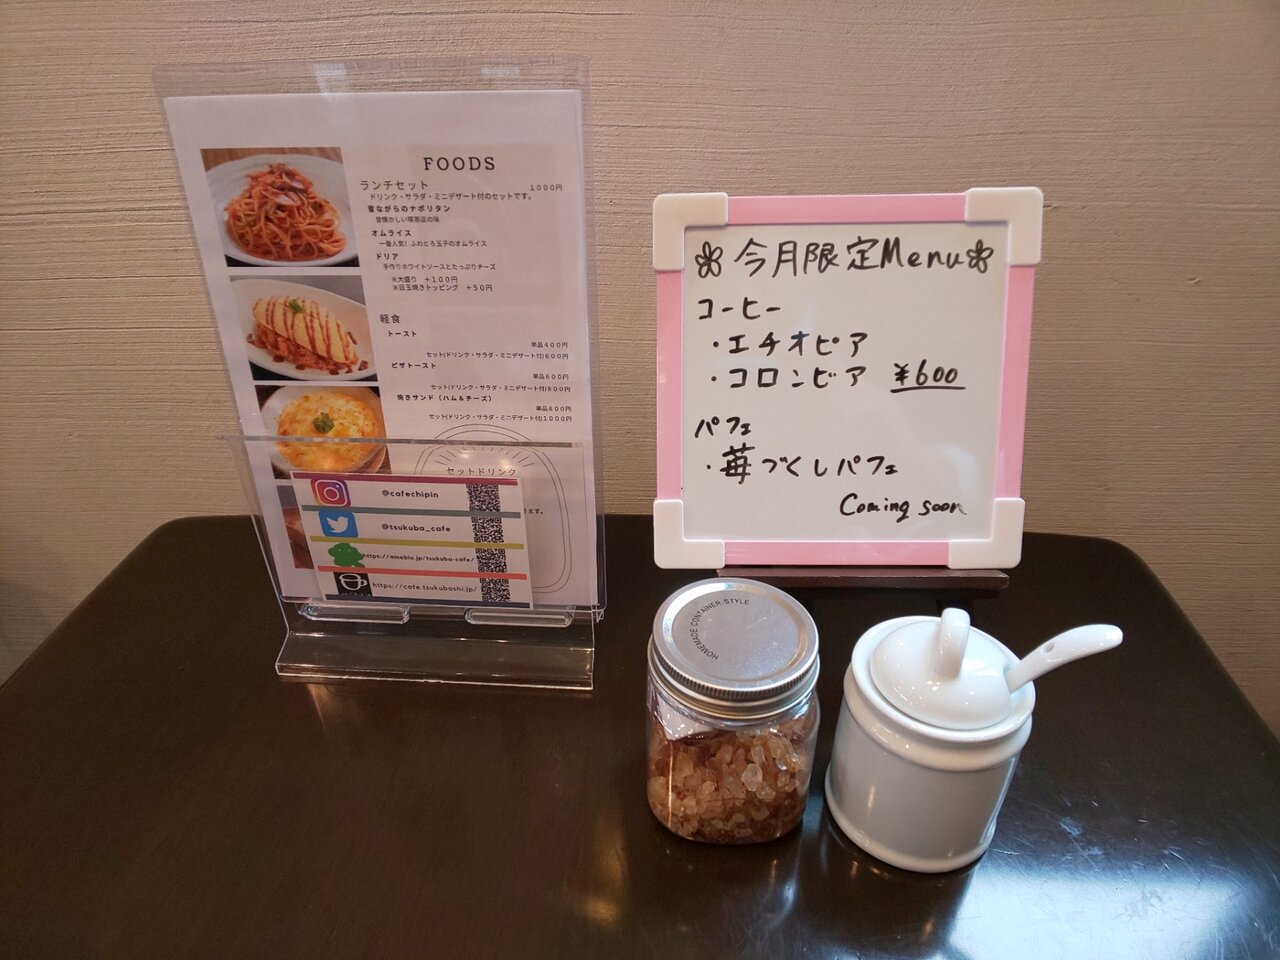 FOODS
ランチセット 1000円
ドリンク・サラダ・ミニデザート付のセットです。
昔ながらのナポリタン
昔懐かしい喫茶店の味
オムライス
一番人気！ふわとろ玉子のオムライス
ドリア
手作りホワイトソースとたっぷりチーズ
※大盛り ＋100円
※目玉焼きトッピング ＋50円
軽食
トースト
単品400円
セット(ドリンク・サラダ・ミニデザート付)600円
ピザトースト
単品600円
セット(ドリンク・サラダ・ミニデザート付)800円
焼きサンド（ハム＆チーズ）
単品800円
セット(ドリンク・サラダ・ミニデザート付)1000円
セットドリンク
ます。
@cafechipin
@tsukuba_cafe
https://ameblo.jp/tsukuba-cafe/
https://cafe.tsukubashi.jp/
今月限定Menu
コーヒー
・エチオピア
・コロンビア ¥600
パフェ
・苺づくしパフェ
Coming soon
HOMEMADE CONTAINER STYLE